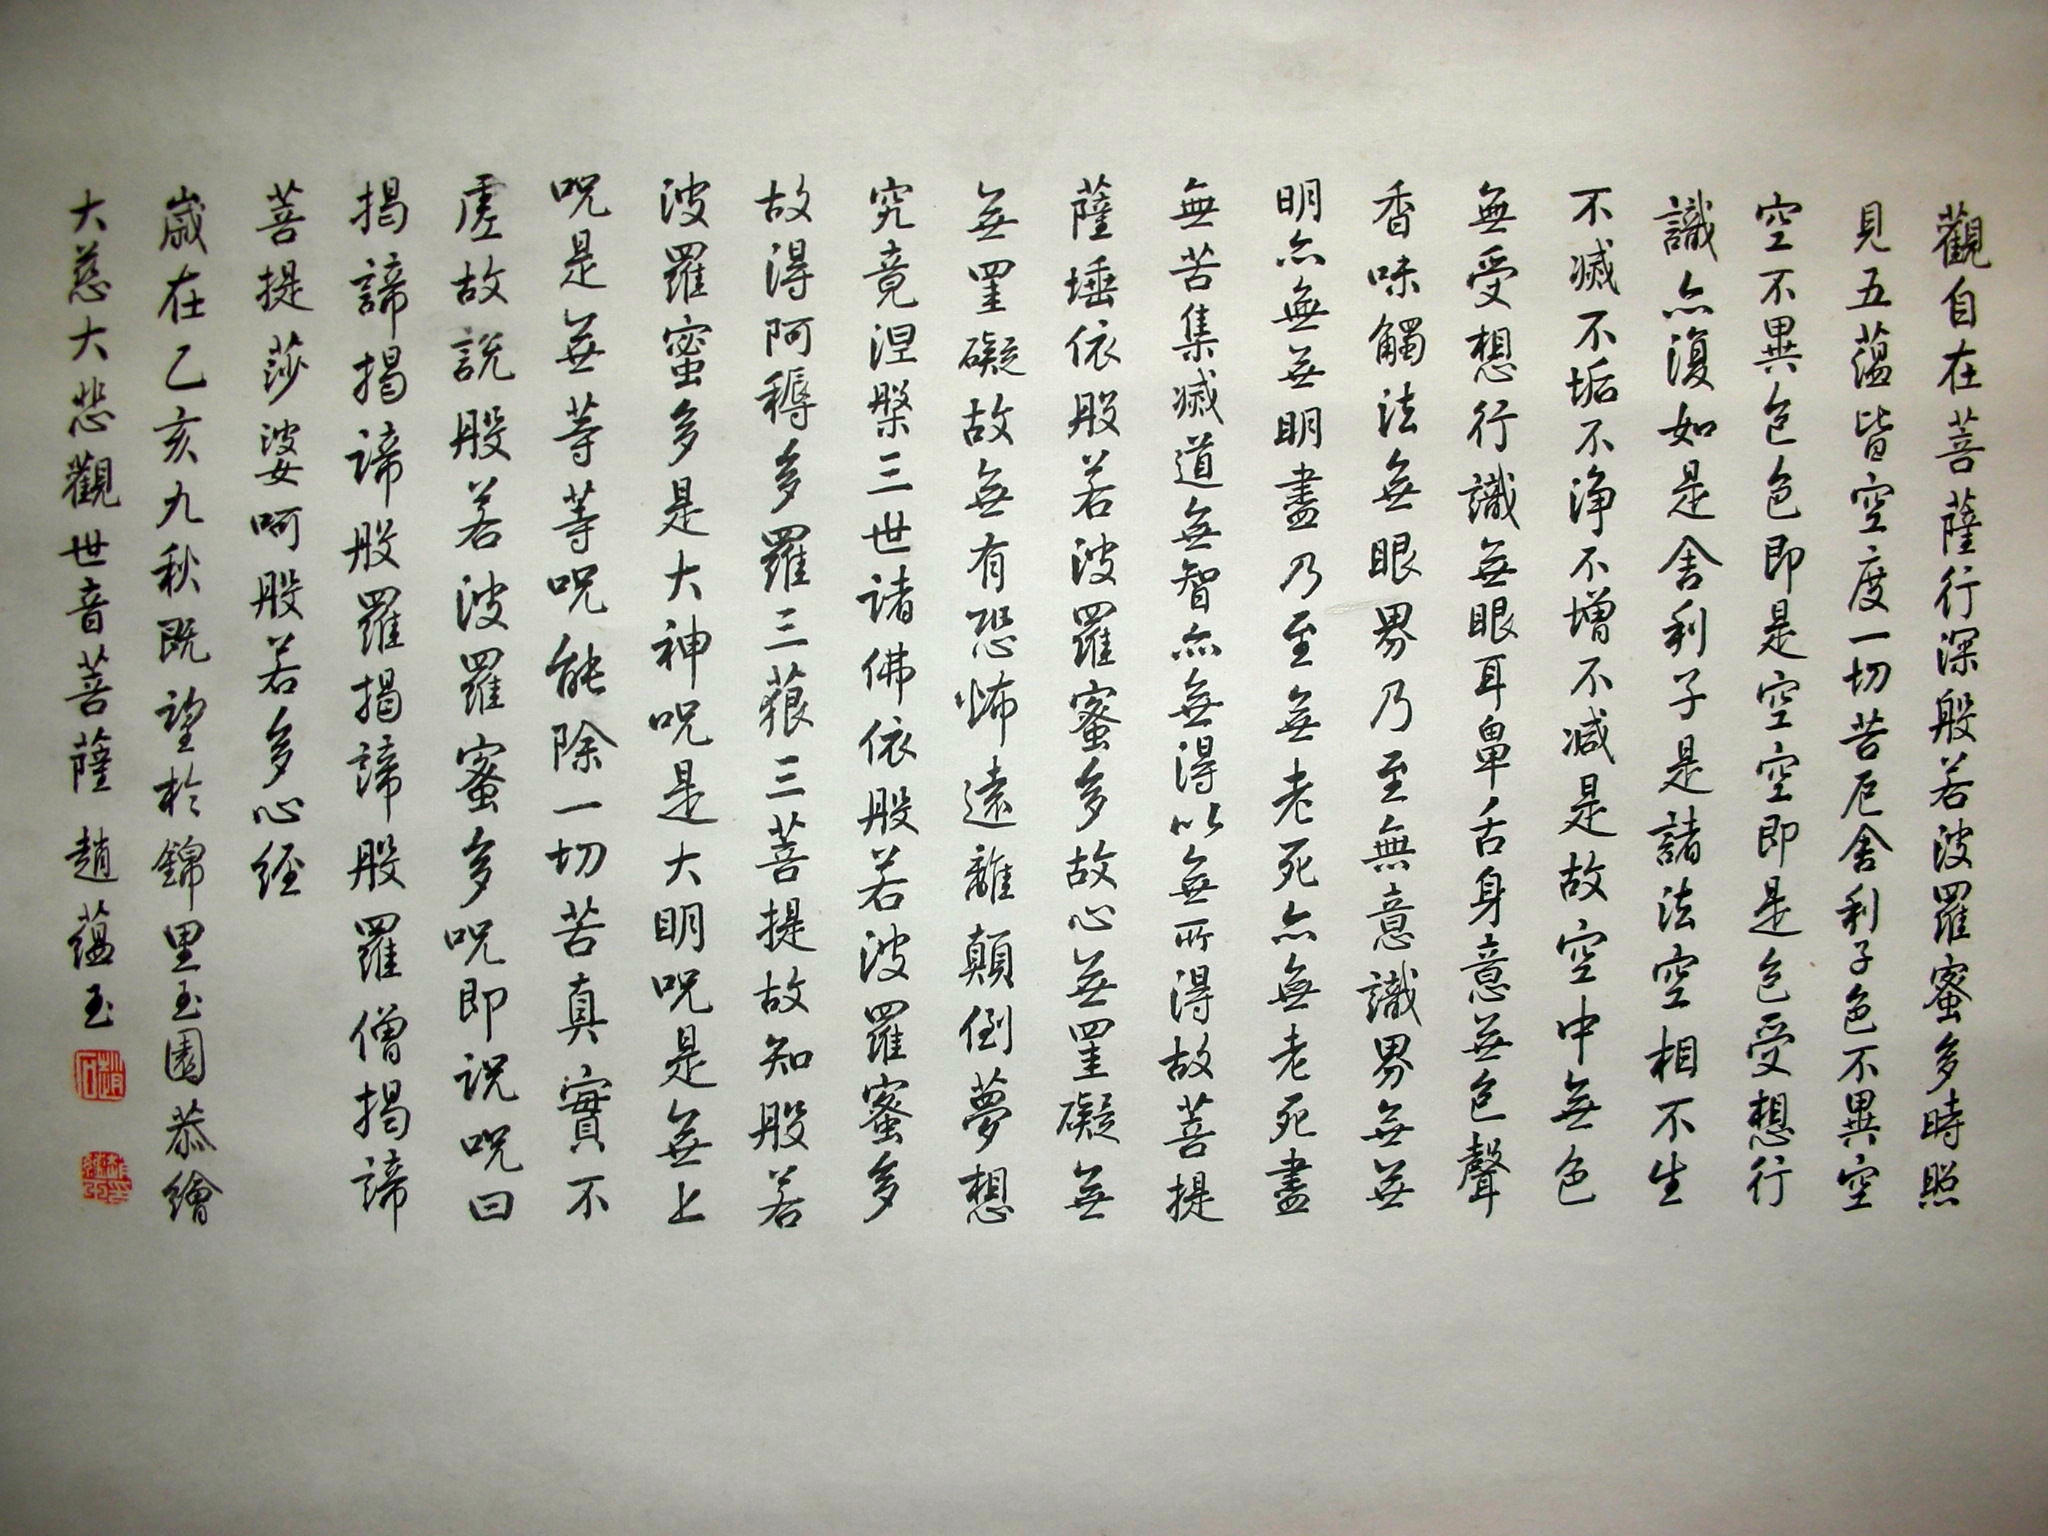 觀自在菩薩行深般若波羅蜜多時照
見五蕰皆空度一切苦厄舍利子色不異空
空不異色色即是空空即是色受想行
識亦復如是舍利子是諸法空相不生
不滅不垢不净不增不減是故空中無色
無受想行識無眼耳鼻舌身意無色聲
香味觸法無眼界乃至無意識界無無
明亦無無明盡乃至無老死亦無老死盡
無苦集滅道無智亦無得以無所得故菩提
薩埵依般若波羅蜜多故心無罣礙無
無罣礙故無有恐怖遠離顛倒夢想
究竟涅槃三世诸佛依般若波羅蜜多
故得阿耨多羅三藐三菩提故知般若
波羅蜜多是大神呪是大明呪是無上
呪是無等等呪能除一切苦真實不
虛故說般若波羅蜜多呪即说呪曰
揭諦揭諦般羅揭諦般羅僧揭諦
菩提莎婆呵般若多心經
歲在乙亥九秋既望於錦里玉園恭繪
大慈大悲觀世音菩薩 趙蕰玉